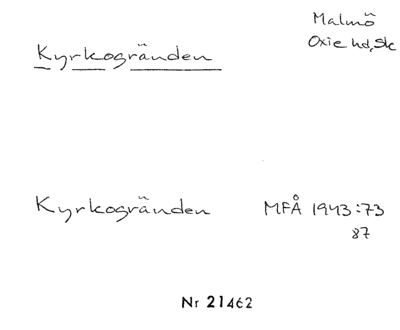 Malmö
Kyrkogränden
Oxie hd, Sk
Kyrkogränden MFÅ 1943:73
87
Nr 21462